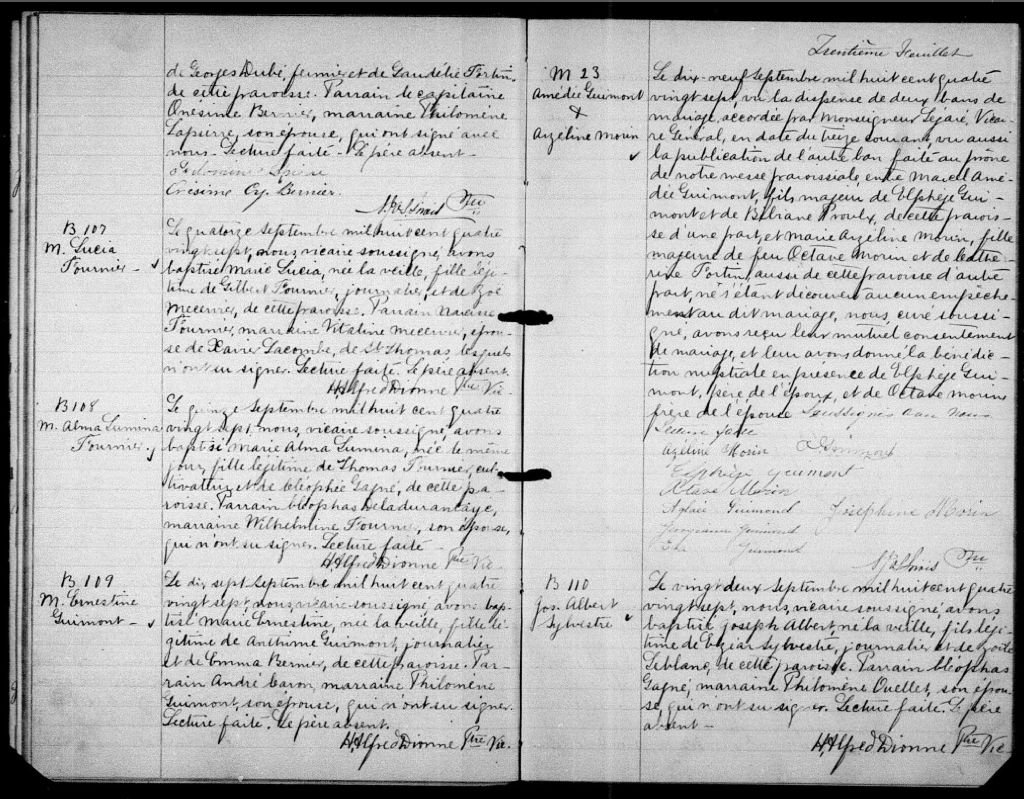 de Georges Dubé, fermier et de Gaudélie Fortin,
de cette paroisse. Parrain le capitaine
Onésime Bernier, marraine Philomène
Lapierre, son épouse, qui ont signé avec
nous. Lecture faite - Le père absent -
Onésime Bernier.
Ptre
B 107
M. Lucia
Fournier -
Le quatorze septembre mil huit cent quatre
vingt sept, nous, vicaire soussigné, avons
baptisé Marie Lucia, née la veille, fille légi-
time de Gilbert Fournier, journalier, et de Zoé
de cette paroisse. Parrain Narcisse
Fournier, marraine Vitaline épou-
se de Xavier Lacombe, de St Thomas lesquels
n'ont su signer. Lecture faite. Le père absent.
H. Alfred Dionne Ptre Vic.
B 108
M. Alma Lumina
Fournier -
Le quinze septembre mil huit cent quatre
vingt sept, nous, vicaire soussigné, avons
baptisé Marie Alma Lumina, née le même
jour, fille légitime de Thomas Fournier, cul-
tivateur, et de Cléophée Gagné, de cette pa-
roisse. Parrain Cléophas Deladurantaye,
marraine Wilhelmine Fournier, son épouse,
qui n'ont su signer. Lecture faite -
H. Alfred Dionne Ptre Vic.
B 109
M. Ernestine
Guimont -
Le dix sept septembre mil huit cent quatre
vingt sept, nous, vicaire soussigné, avons bap-
tisé Marie Ernestine, née la veille, fille lé-
gitime de Anthime Guimont, journalier
et de Emma Bernier, de cette paroisse. Par-
rain André Caron, marraine Philomène
Guimont, son épouse, qui n'ont su signer.
Lecture faite. Le père absent.
H. Alfred Dionne Ptre Vic.
Trentième Feuillet
M 23
Amédée Guimont
&
Azéline Morin
Le dix-neuf septembre mil huit cent quatre
vingt sept, vu la dispense de deux bans de
mariage, accordée par Monseigneur Légaré, Vicai-
re Général, en date du treize courant, vu aussi
la publication de l'autre ban faite au prône
de notre messe paroissiale, entre Marcel Amé-
dée Guimont, fils majeur de Elphège Gui-
mont et de Bibiane Proulx, de cette parois-
se d'une part, et Marie Azéline Morin, fille
majeure de feu Octave Morin et de Cathe-
rine Fortin, aussi de cette paroisse d'autre
part, ne s'étant découvert aucun empêche-
ment au dit mariage, nous, curé soussi-
gné, avons reçu leur mutuel consentement
de mariage, et leur avons donné la bénédic-
tion nuptiale en présence de Elphège Gui-
mont, père de l'époux, et de Octave Morin
frère de l'épouse soussignés avec nous
Lecture faite
Azéline Morin
Elphège Guimont
Octave Morin
Guimond Joséphine Morin
Guimond
Guimond
Ptre
B 110
Jos. Albert
Sylvestre
Le vingt deux septembre mil huit cent quatre
vingt sept, nous, vicaire soussigné, avons
baptisé Joseph Albert, né la veille, fils légi-
time de Elzéar Sylvestre, journalier, et de Zoïle
Leblanc, de cette paroisse. Parrain Cléophas
Gagné, marraine Philomène Ouellet, son épou-
se, qui n'ont su signer. Lecture faite. Le père
absent -
H. Alfred Dionne Ptre Vic.